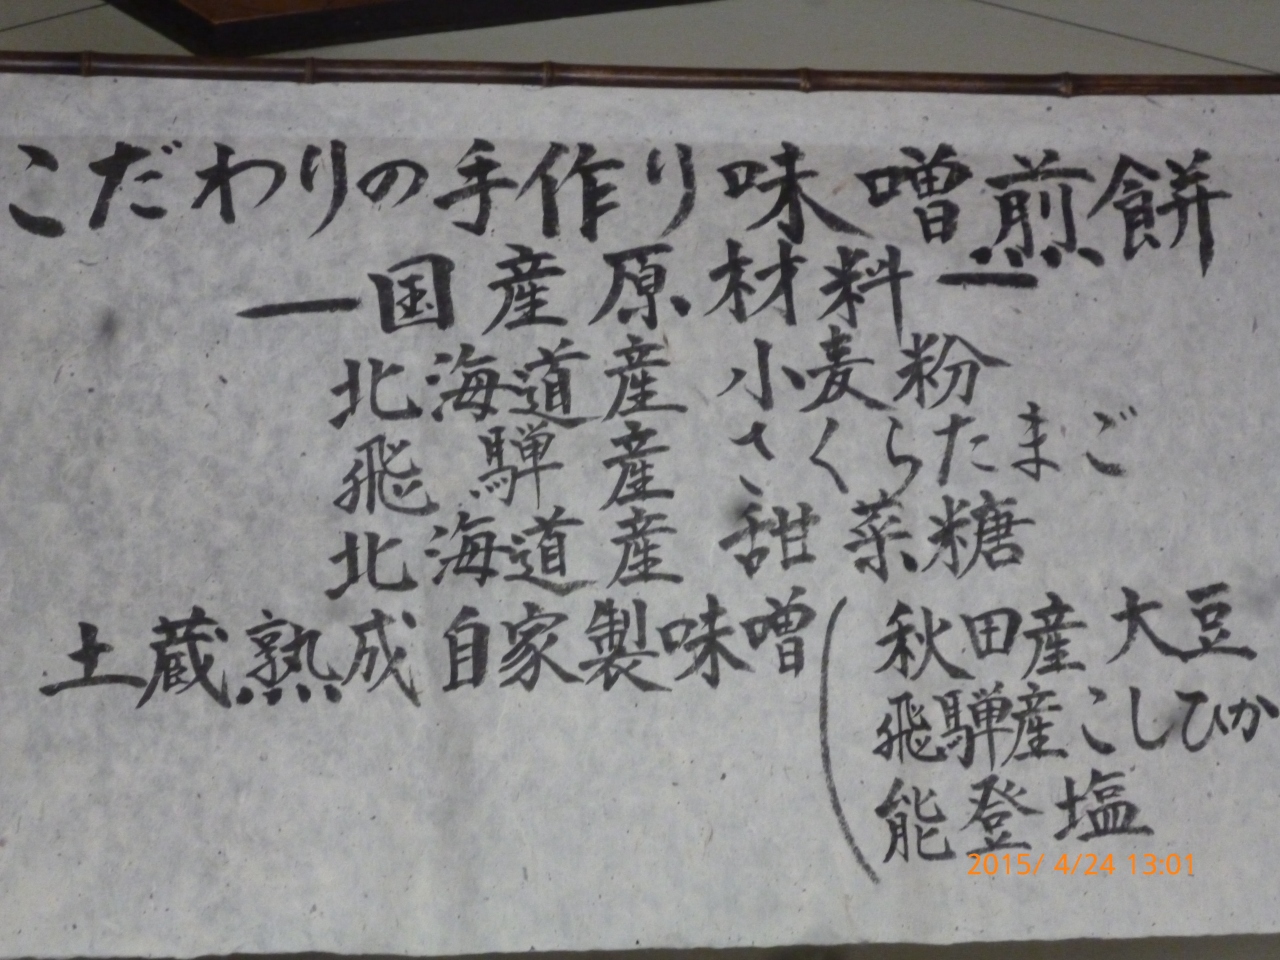 こだわりの手作り味噌煎餅
ー国産原材料ー
北海道産 小麦粉
飛騨産 さくらたまご
北海道産 甜菜糖
土蔵熟成 自家製味噌(
秋田産大豆
飛騨産こしひか
能登塩
2015/ 4/24 13:01